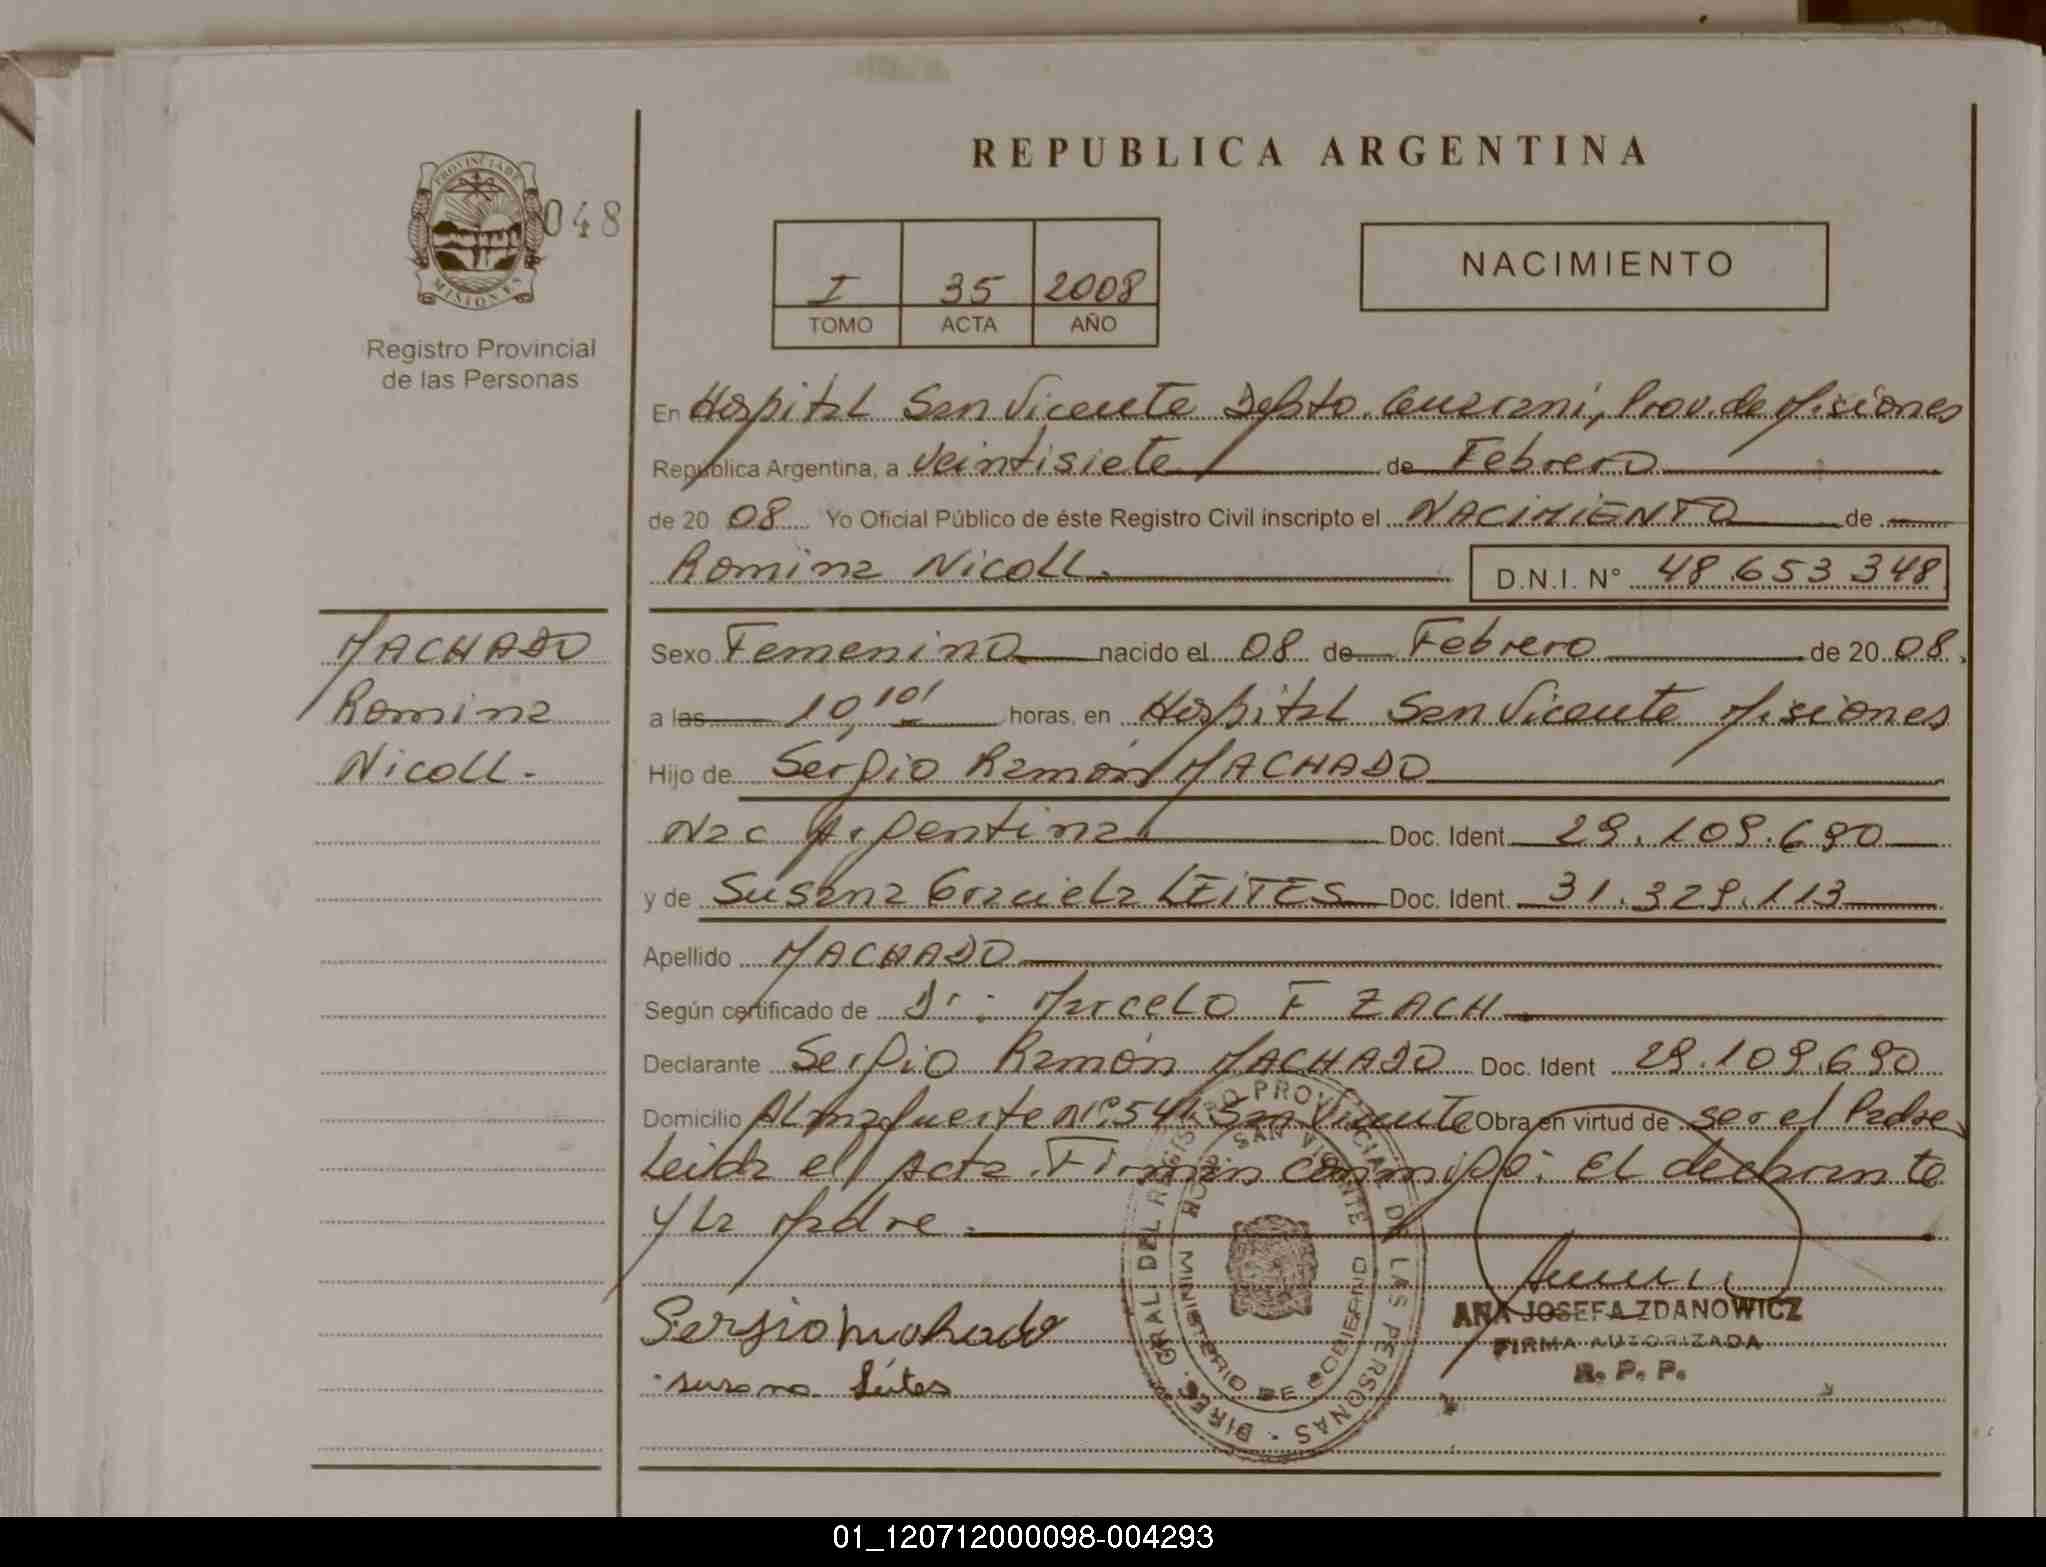 REPUBLICA ARGENTINA
PROVINCIA DE MISIONES
048
Registro Provincial
de las Personas
I 35 2008
TOMO ACTA AÑO
NACIMIENTO
En Hospital San Vicente Depto. Guarani, Prov. de Misiones
República Argentina, a veintisiete de Febrero
de 20 08 Yo Oficial Público de éste Registro Civil inscripto el NACIMIENTO de
Romina Nicoll. D.N.I. Nº 48.653.348
MACHADO
Romina
Nicoll.
Sexo Femenino nacido el 08 de Febrero de 20 08.
a las 10,10' horas, en Hospital San Vicente Misiones
Hijo de Sergio Ramón MACHADO
Nac Argentina. Doc. Ident. 29.109.690
y de Susana Graciela LEITES Doc. Ident. 31.329.113
Apellido MACHADO
Según certificado de Dr: Marcelo F ZACH.
Declarante Sergio Ramón MACHADO Doc. Ident 29.109.690
Domicilio Almafuerte Nº 541 San Vicente Obra en virtud de ser el Padre
Leida el Acta. Firman conmigo: El declarante
y la Madre.
Sergio Machado
susana Leites
DIREC. GRAL. DEL REGISTRO PROVINCIAL DE LAS PERSONAS
HOSP. SAN VICENTE
MINISTERIO DE GOBIERNO
ANA JOSEFA ZDANOWICZ
FIRMA AUTORIZADA
R. P. P.
01_120712000098-004293